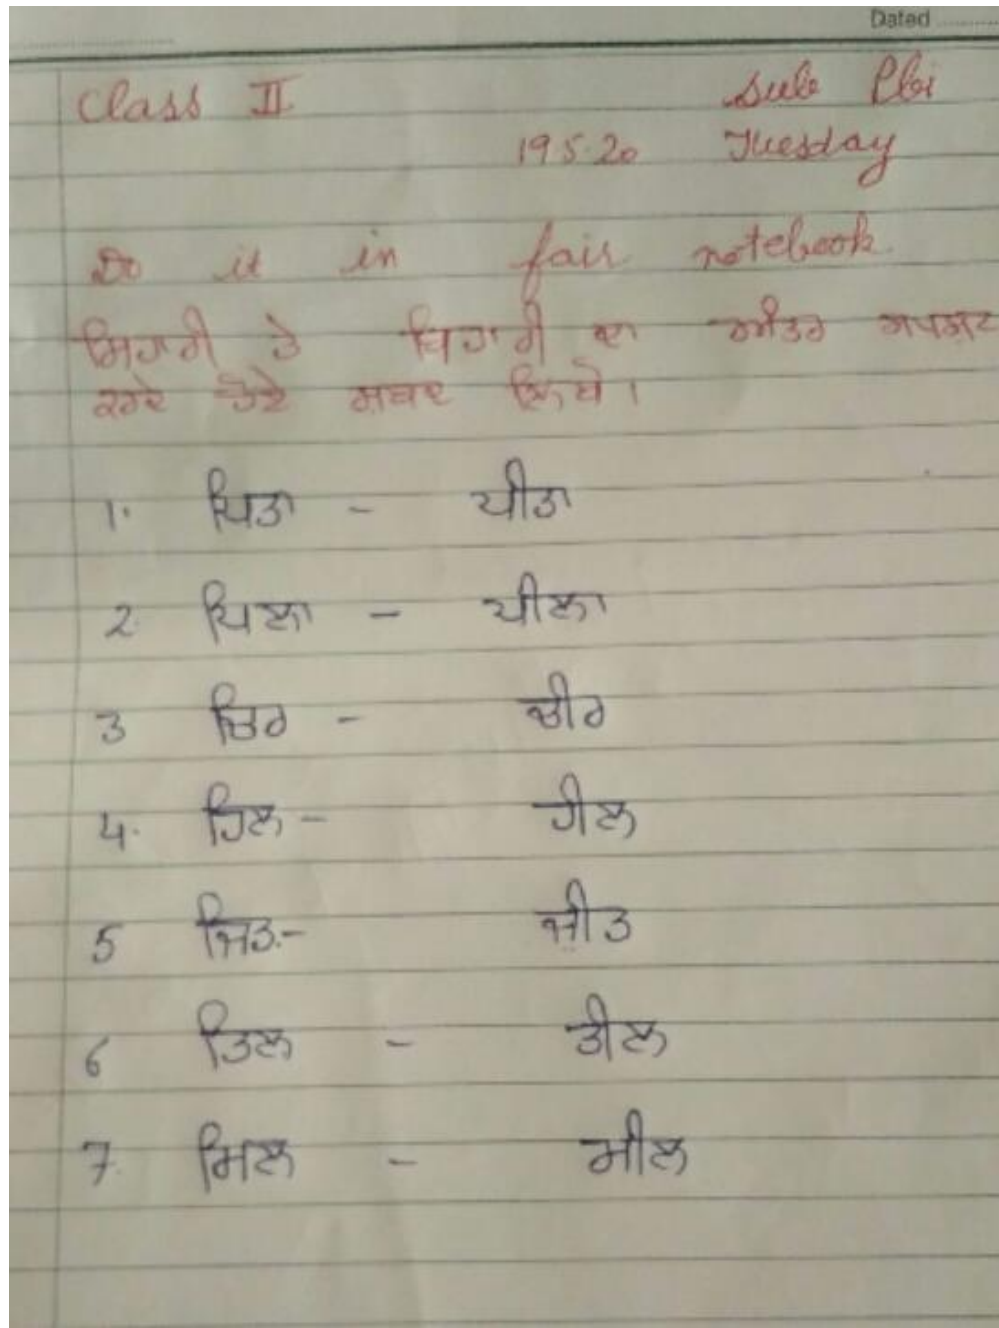 Dated
Class II Sub Pbi
19.5.20 Tuesday
Do it in fair notebook.
ਸਿਹਾਰੀ ਤੇ ਬਿਹਾਰੀ ਦਾ ਅੰਤਰ ਸਪਸ਼ਟ
ਕਰਦੇ ਹੋਏ ਸ਼ਬਦ ਲਿਖੋ।
1. ਪਿਤਾ - ਪੀਤਾ
2. ਪਿਲਾ - ਪੀਲਾ
3 ਚਿਰ - ਚੀਰ
4. ਹਿਲ - ਹੀਲ
5 ਜਿਤ - ਜੀਤ
6 ਤਿਲ - ਤੀਲ
7. ਮਿਲ - ਮੀਲ